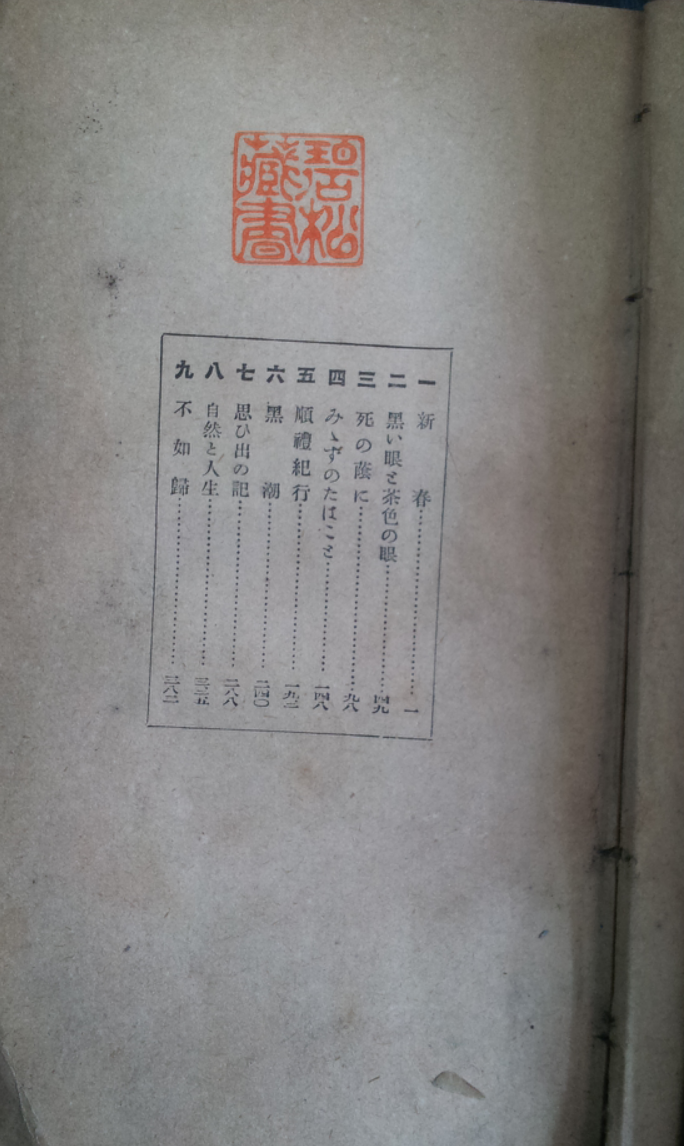 碧松
藏書
一 新春 一
二 黑い眼と茶色の眼 四九
三 死の蔭に 九八
四 みゝずのたはこと 一四八
五 順禮紀行 一九二
六 黑潮 二四〇
七 思ひ出の記 二八八
八 自然と人生 三三五
九 不如歸 三八二